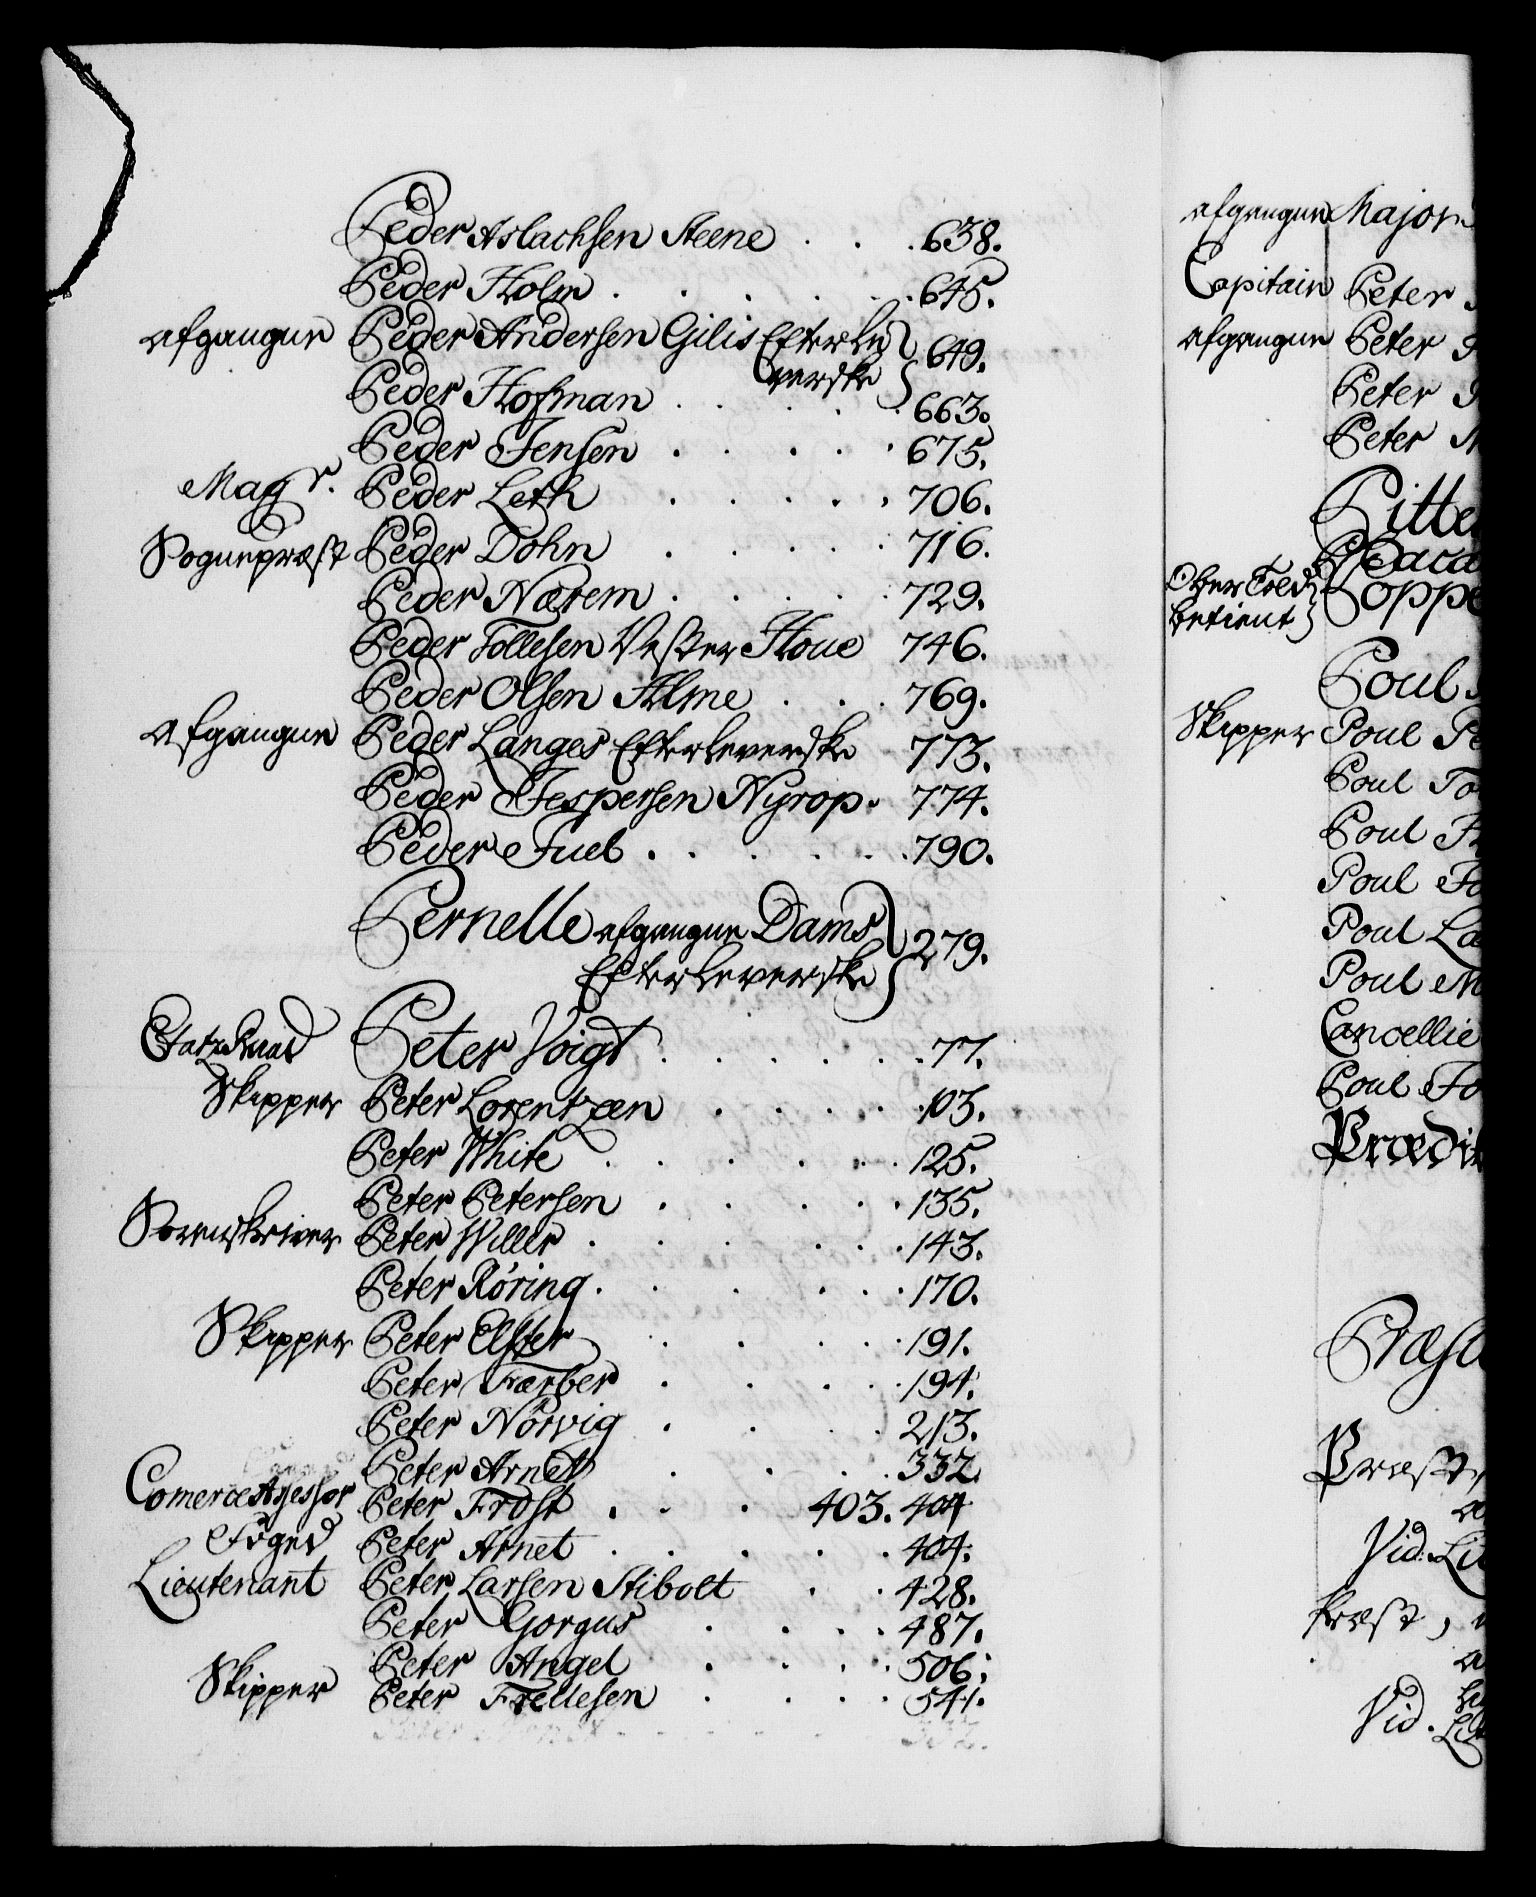 Peder Aslachsen Steene . . . 638.
Peder Holm . . . . . . 645.
afgangne Peder Andersen Gilis Efterle
verske } 649.
Peder Hofman . . . . . 663.
Peder Jensen . . . . . 675.
Magr. Peder Leth . . . . . 706.
Sognepræst Peder Dohn . . . . . 716.
Peder Nærem . . . . . 729.
Peder Tollesen Vester Houe 746.
Peder Olsen Holme . . . 769.
afgangne Peder Langes Efterleverske 773.
Peder Jespersen Nyrop. 774.
Peder Juel . . . . . . 790.
Pernelle afgangne Dams
Efterleverske } 279.
EtatzRaad Peter Voigt . . . . . . 77.
Skipper Peter Lorentzen . . . . . 103.
Peter White . . . . . . 125.
Peter Petersen . . . . . 135.
Sorenskriver Peter Willer . . . . . . 143.
Peter Röring . . . . . . 170.
Skipper Peter Elster . . . . . 191.
Peter Færber . . . . . 194.
Peter Nörvig . . . . 213.
Peter Arnet . . . . 332.
Comerce Assessor Peter Frost . . . 403. 404
Foged Peter Arnet . . . . . . 404.
Lieutenant Peter Larsen Stibolt . . 428.
Peter Gorgus . . . . 487.
Peter Angel . . . . 506.
Skipper Peter Frellesen . . . . 541.
332.
afgangne Major
Capitain Peter
afgangne Peter
Peter
Peter
Pitte
Ober Told
betient } Poppe
Poul
Skipper Poul Pe
Poul To
Poul
Poul Jo
Poul La
Poul M
Cancellie
Poul Jo
Prædi
Præsd
Præst,
Vid: Li
Præst,
Vid.